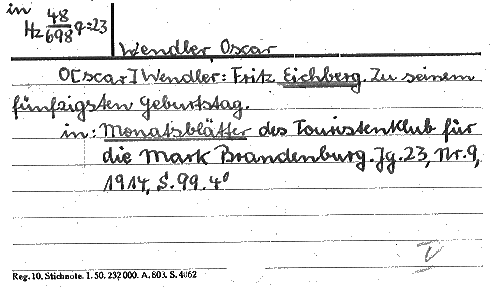 in
Hz 48/698 q=23
Wendler, Oscar
O[scar] Wendler: Fritz Eichberg. Zu seinem
fünfzigsten Geburtstag.
in: Monatsblätter des Touristenklub für
die Mark Brandenburg. Jg. 23, Nr. 9,
1914, S. 99. 4°
Reg. 10. Stichnote. 1. 50. 232 000. A. 803. S. 4062